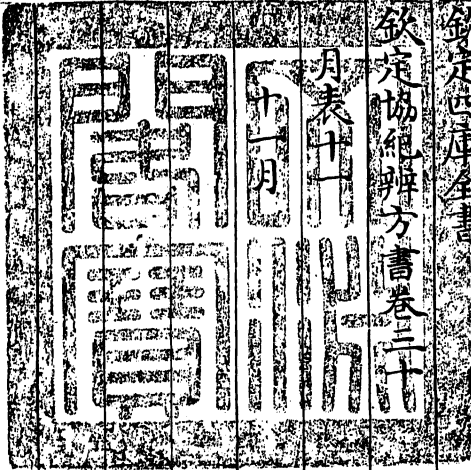 欽定四庫全書
欽定協紀辨方書卷三十
月表十一
十一月
文淵閣寶